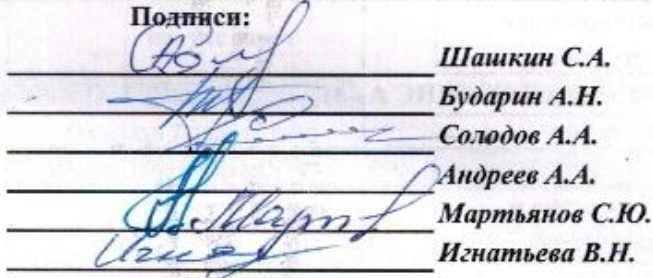 Подписи:
Шашкин С.А.
Бударин А.Н.
Солодов А.А.
Андреев А.А.
Мартьянов С.Ю.
Игнатьева В.Н.